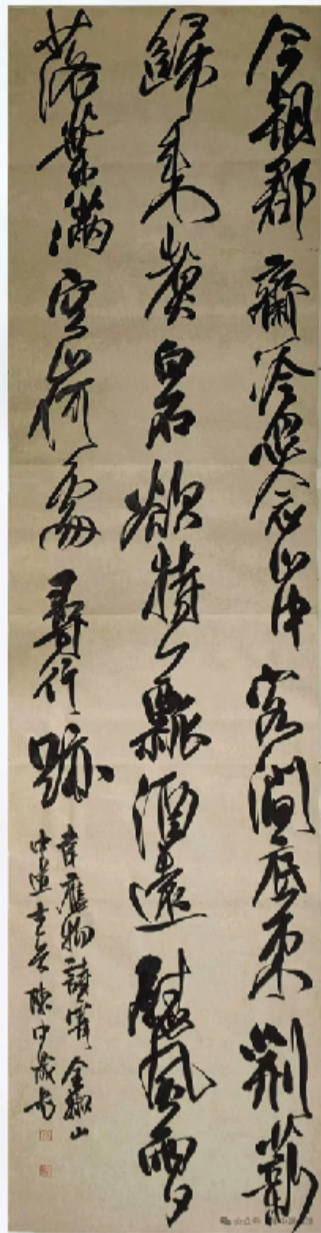 今朝郡齋冷忽念山中客澗底束荆薪
歸来煮白石欲持一瓢酒遠慰風雨夕
落葉滿空山何處尋行跡
韋應物詩寄全椒山
中道士 陳中